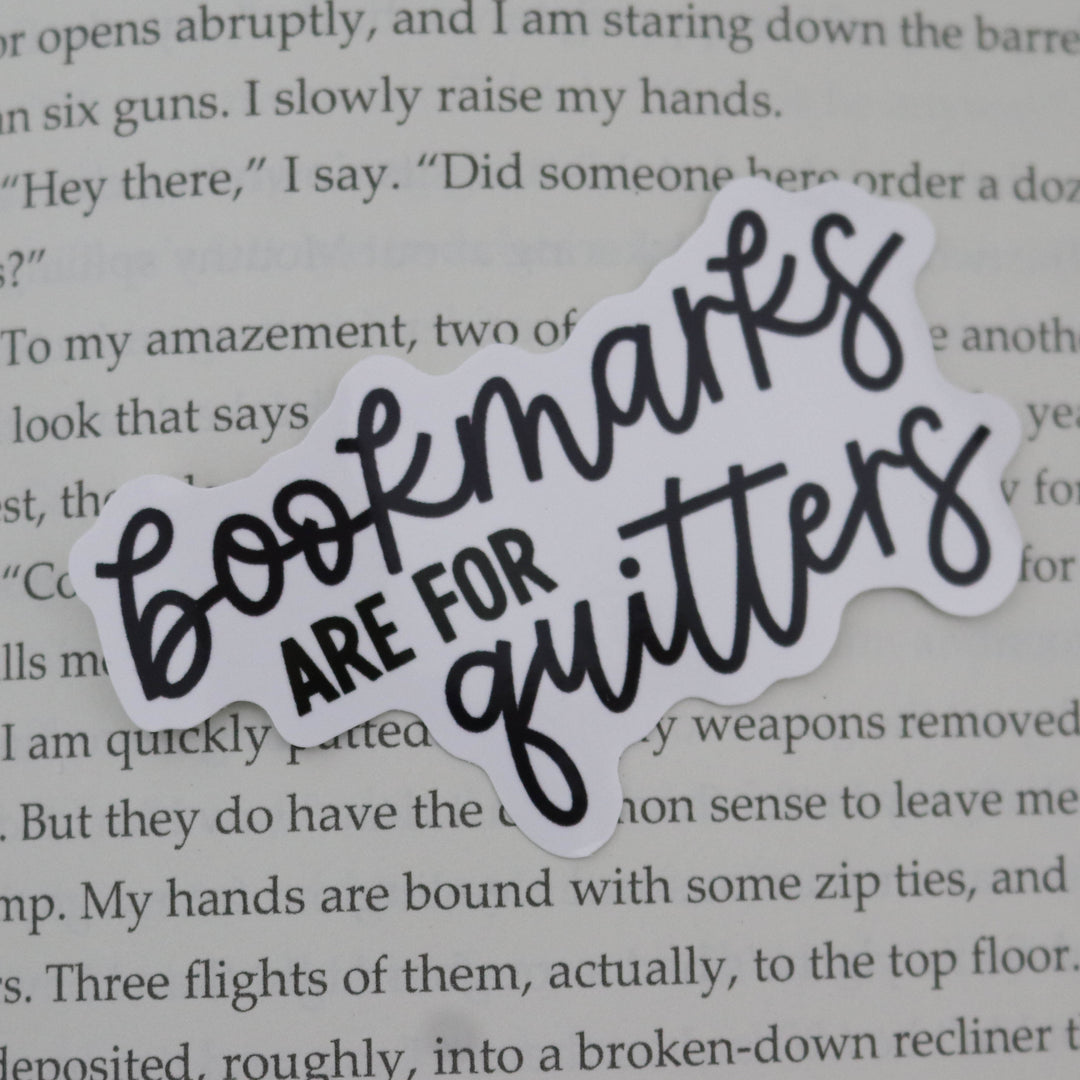 or opens abruptly, and I am staring down the barre
an six guns. I slowly raise my hands.
“Hey there,” I say. “Did someone here order a doz
s?”
To my amazement, two of
anoth
look that says
yea
est,
for
“Co
for
lls
bookmarks
ARE FOR
quitters
I am quickly patted
y weapons removed
. But they do have the
mon sense to leave me
mp. My hands are bound with some zip ties, and
rs. Three flights of them, actually, to the top floor.
deposited, roughly, into a broken-down recliner t